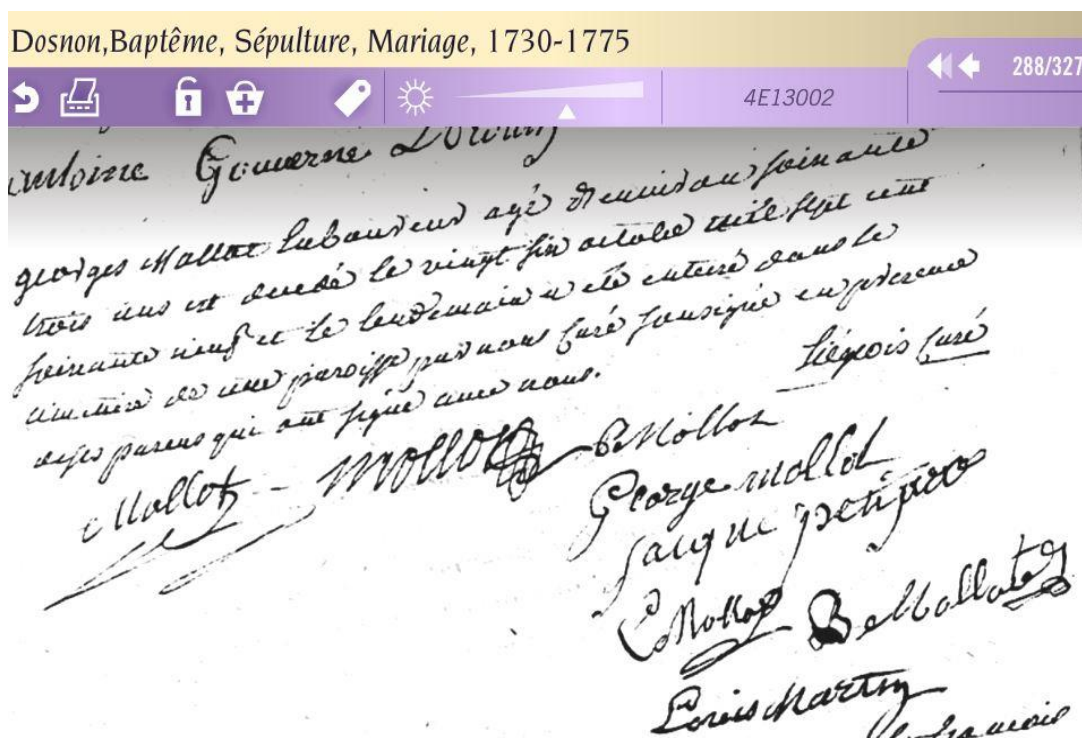 Dosnon,Baptême, Sépulture, Mariage, 1730-1775
288/327
4E13002
antoine Gouverne
georges Mollot laboureur agé denviron soixante
trois ans est decedé le vingt six octobre mile sept cent
soixante neuf et le lendemain a eté enteré dans le
cimetiere de cette paroisse par nous curé soussigné en presence
de ses parens qui ont signé avec nous.
liégeois curé
Mollot Mollot Mollot
George mollot
jacque petijean
Mollot B Mollot
Louis Martin